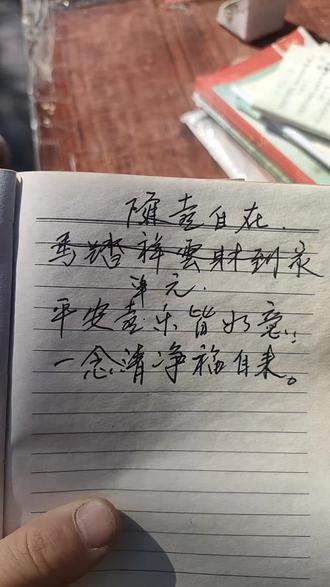 随喜自在.
馬踏祥雲财到家
单元.
平安喜乐皆如意;
一念清净福自来。